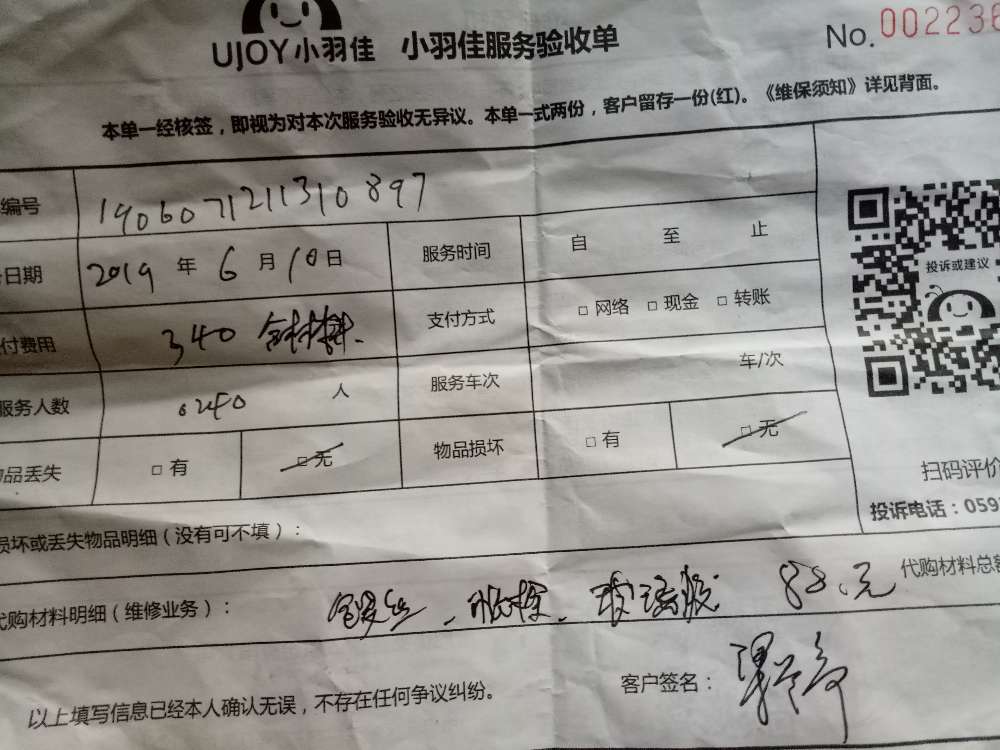 UJOY小羽佳 小羽佳服务验收单 No.002236
本单一经核签，即视为对本次服务验收无异议。本单一式两份，客户留存一份(红)。《维保须知》详见背面。
编号 1906071211310897
日期 2019 年 6 月 10 日 服务时间 自 至 止
付费用 340 含材料. 支付方式 □ 网络 □ 现金 □ 转账
服务人数 人 服务车次 车/次
品丢失 □ 有 □ 无 物品损坏 □ 有 □ 无
损坏或丢失物品明细（没有可不填）：
代购材料明细（维修业务）： 玻璃胶 88.元 代购材料总额
以上填写信息已经本人确认无误，不存在任何争议纠纷。 客户签名：
投诉或建议
扫码评价
投诉电话：059